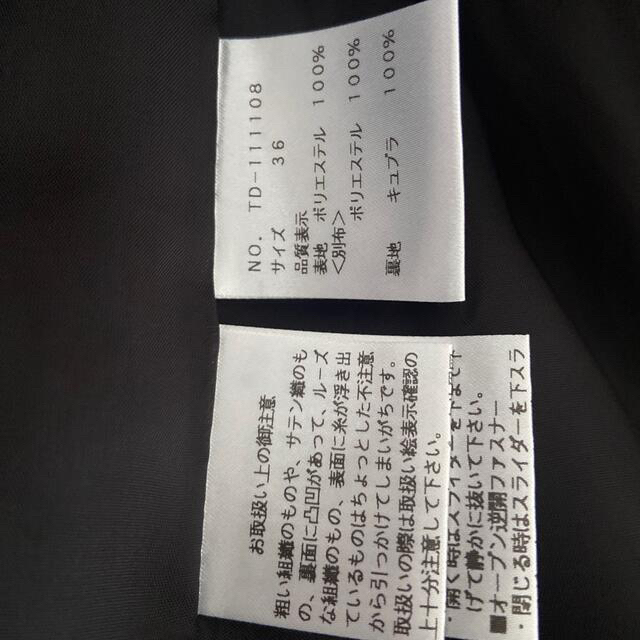 NO. TD-111108
サイズ 36
品質表示
表地 ポリエステル 100%
<別布>
ポリエステル 100%
裏地 キュプラ 100%
お取扱い上の御注意
粗い組織のものや、サテン織のも
の、裏面に凸凹があって、ルーズ
な組織のもの、表面に糸が浮き出
ているものはちょっとした不注意
から引っかけてしまいがちです。
取扱いの際は取扱い絵表示確認の
上十分注意して下さい。
・開く時はスライダーを下まで下
げて静かに抜いて下さい。
■オープン逆開ファスナー
・閉じる時はスライダーを下スラ